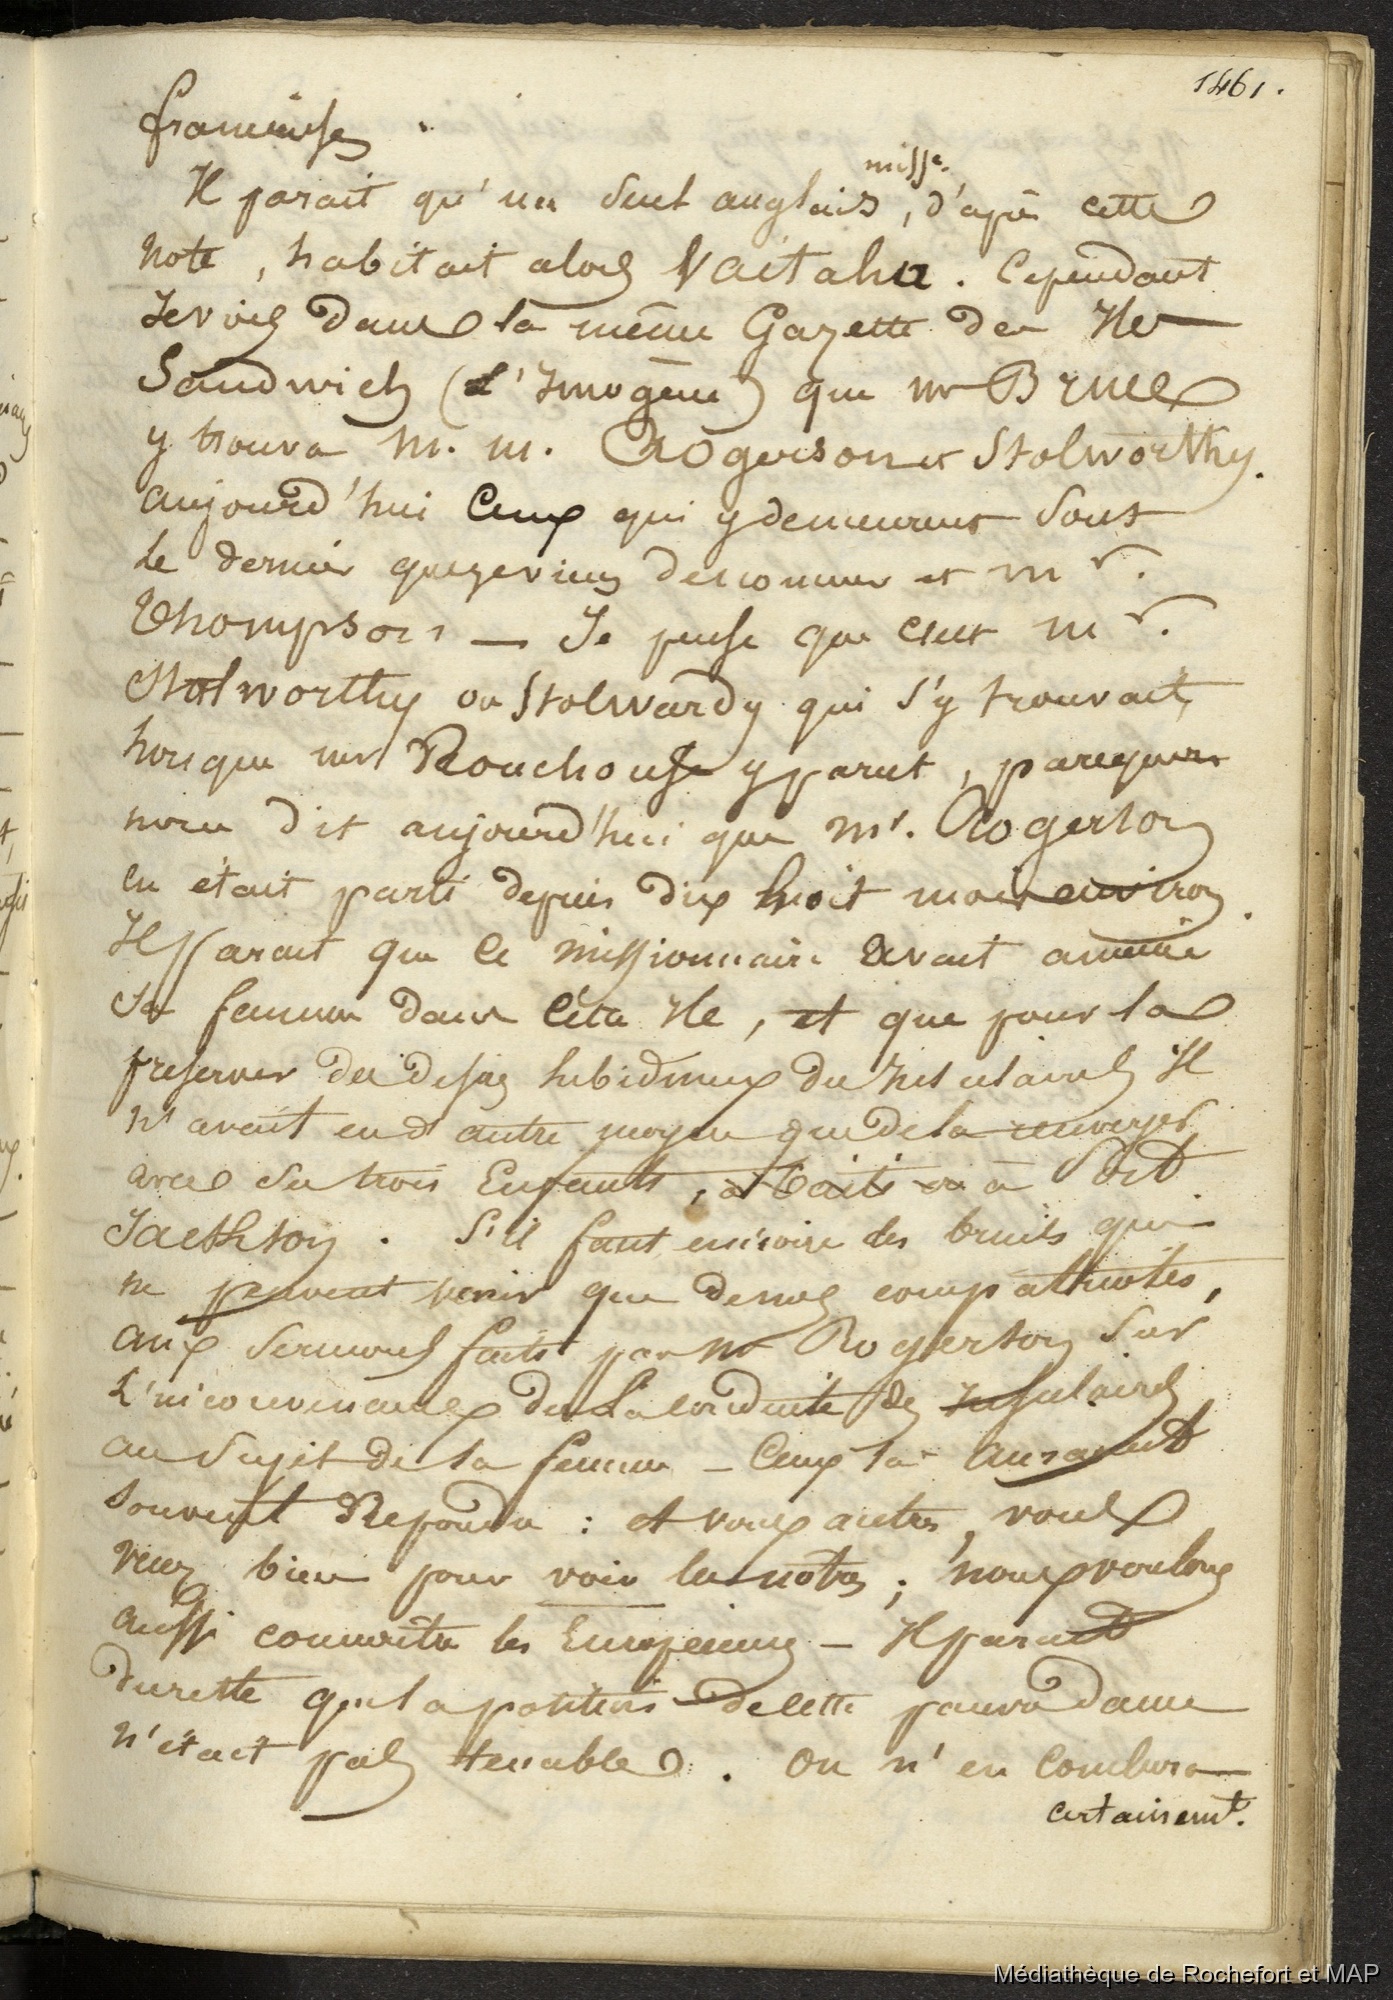 1461.
françaises.
Il parait qu'un seul anglais, d'après cette
miss.re
note, habitait alors Vaitahu. Cependant
Je vois dans la même Gazette des Iles
Sandwich (L'Imogène) que mr Bruce
y trouva m. m. Rogerson et Stolworthy.
aujourd'hui Ceux qui y demeurent Sont
le dernier que je viens de nommer et mr.
Thompson — Je pense que c'est mr.
Stolworthy ou Stolwardy qui s'y trouvait,
lorsque mr Rouchouse y parut, parcequ'on
nous dit aujourd'hui que mr. Rogerson
en était parti depuis dix huit mois environ.
Il parait que ce missionnaire avait amené
sa femme dans cette Ile, et que pour la
preserver des desirs lubidineux des insulaires Il
n'avait eu d'autre moyen que de la renvoyer
avec ses trois Enfants, à Taiti ou à Port
Jackson. S'il faut en croire des bruits qui
ne peuvent venir que de nos compatriotes,
aux sermons faits par mr Rogerson sur
L'inconvenance de la conduite des insulaires
au sujet de sa femme — Ceux la auraient
souvent Repondu : et vous autres, vous
venez bien pour voir les notres ; nous voulons
aussi connaitre les Européennes — Il parait
du reste que la position de cette pauvre dame
n'était pas tenable. On n'en Conclura
certainemt.
Médiathèque de Rochefort et MAP